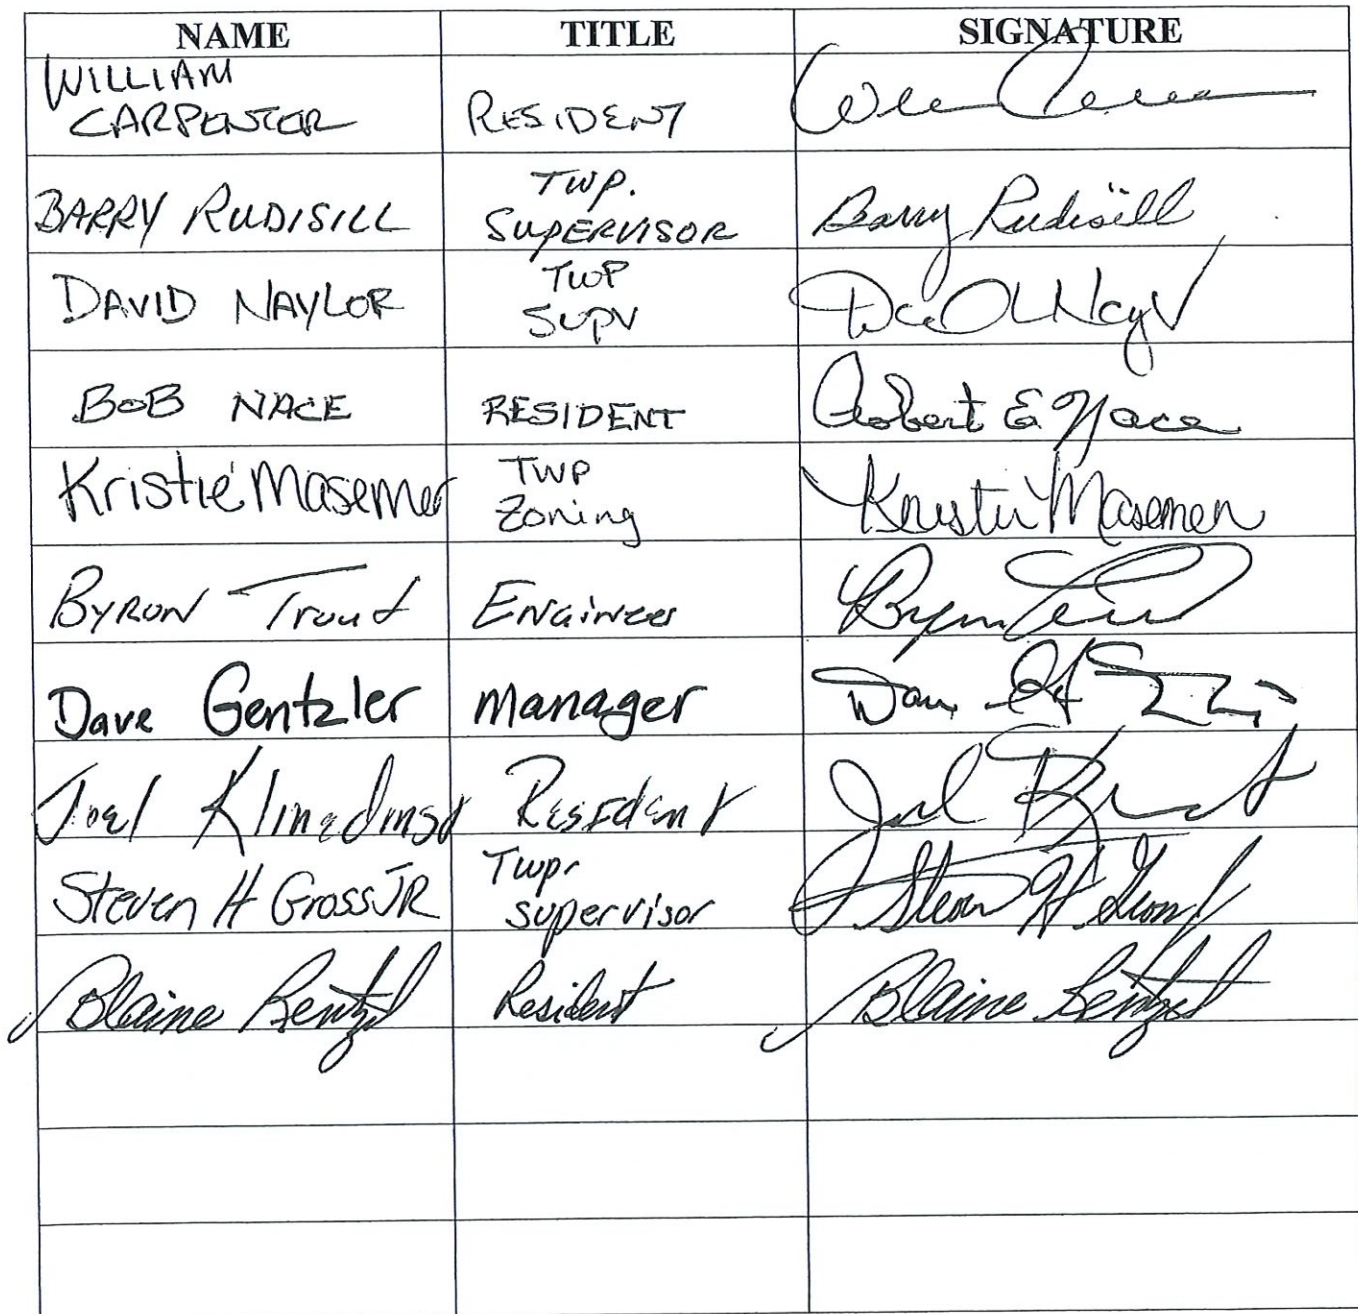 NAME TITLE SIGNATURE
WILLIAM
CARPENTER RESIDENT
BARRY RUDISILL TWP.
SUPERVISOR Barry Rudisill
DAVID NAYLOR TWP
SUPV
BOB NACE RESIDENT Robert E Nace
Kristie Masemer TWP
Zoning Kristie Masemer
BYRON Trout Engineer
Dave Gentzler manager
Joel Klinedinst Resident Joel
Steven H Gross JR Twp.
supervisor Steven H Gross
Blaine Rentzel Resident Blaine Rentzel